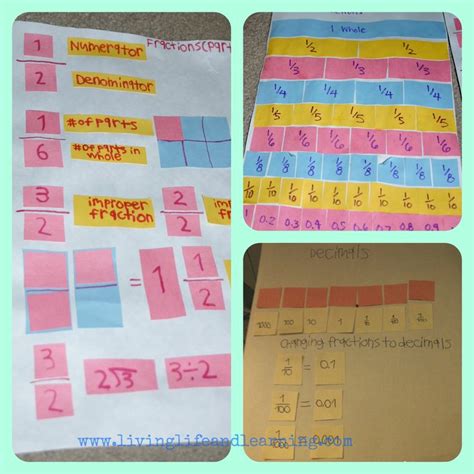 1 Numerator Fractions(part
2 Denominator
1 #of parts
6 #of parts in whole
3 improper fraction 2
2 2
= 1 1
2
3 2√3 3÷2
2
1 whole
1/2 1/2
1/3 1/3 1/3
1/4 1/4 1/4 1/4
1/6 1/6 1/6 1/6 1/6
1/8 1/8 1/8 1/8 1/8 1/8 1/8 1/8
1/10 1/10 1/10 1/10 1/10 1/10 1/10 1/10 1/10
0.2 0.3 0.4 0.5 0.6 0.7 0.8 0.9
Decimals
1000 100 10 1
Changing fractions to decimals
1/10 = 0.1
1/100 = 0.01
1/1000 = 0.001
www.livinglifeandlearning.com